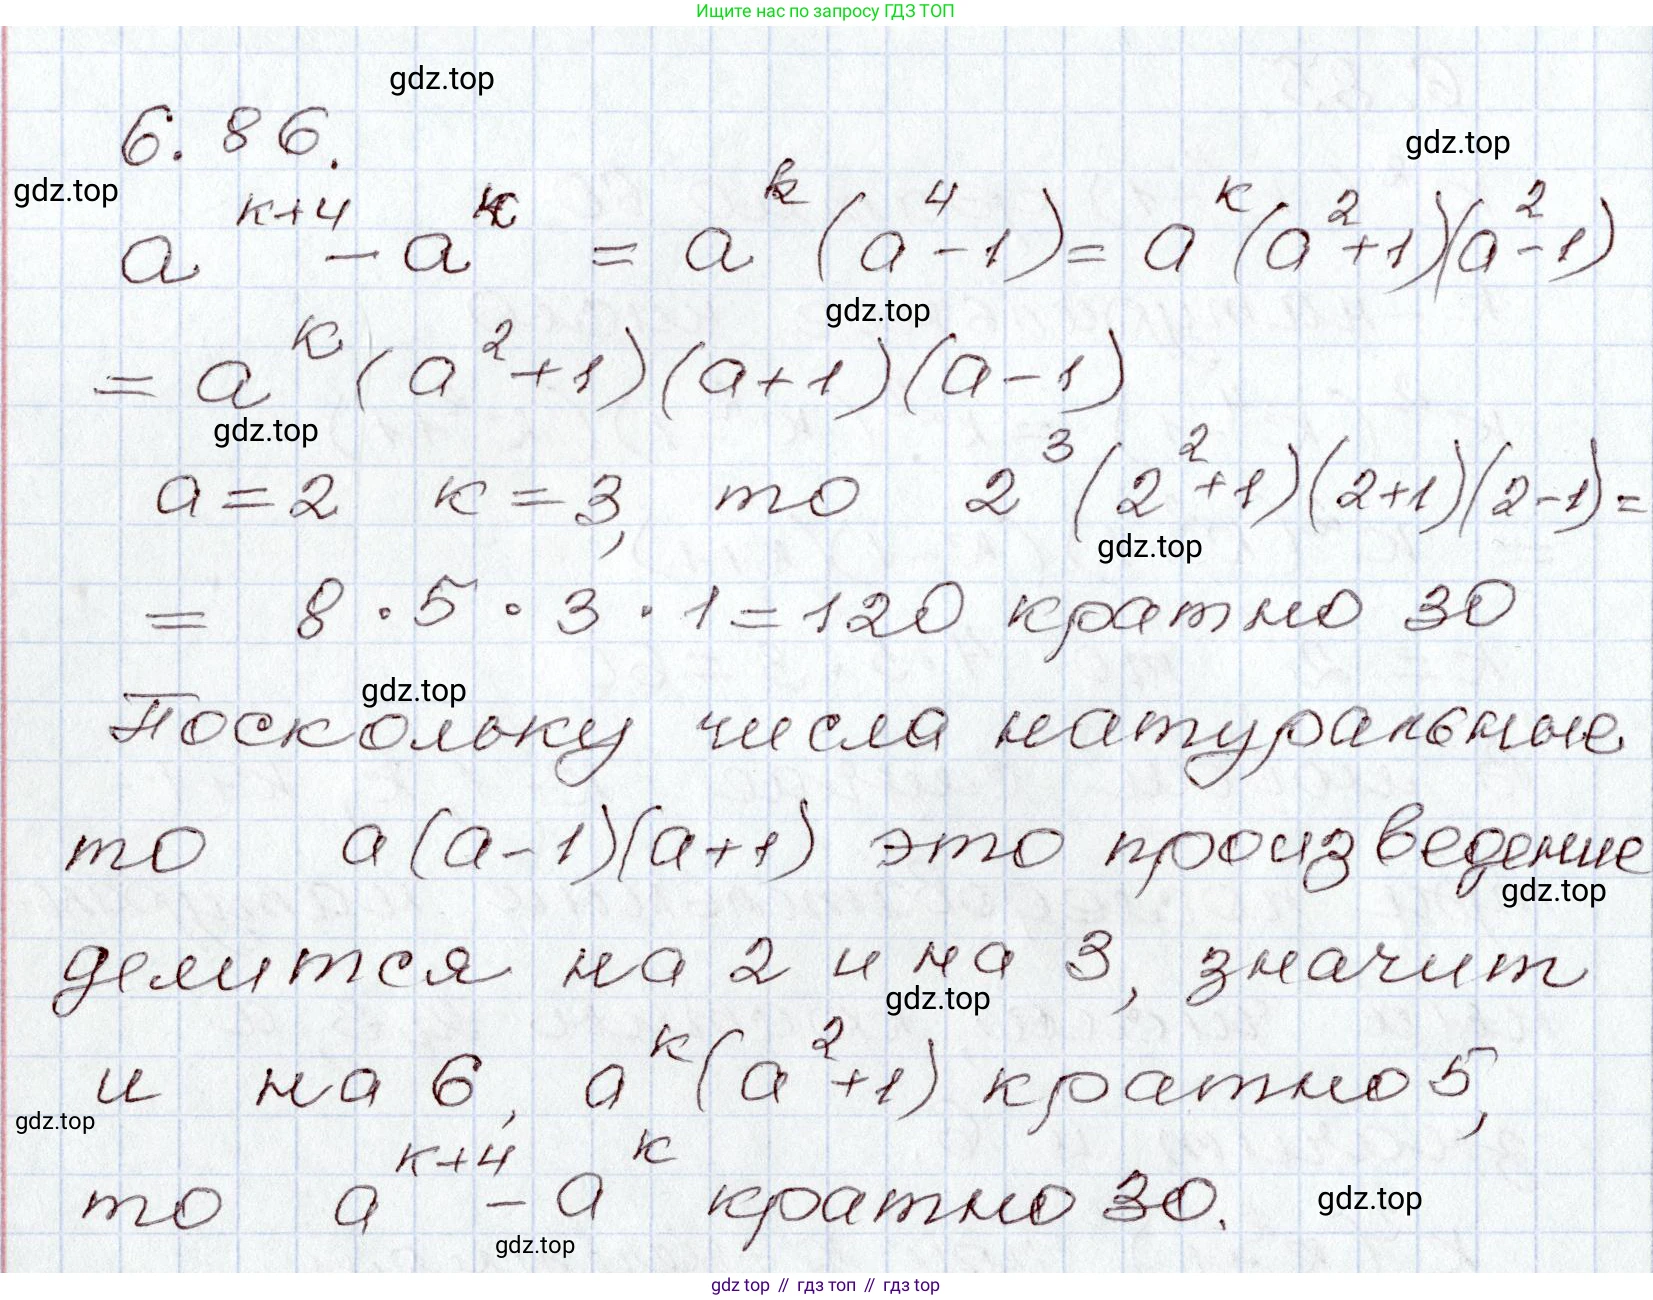 Ищите нас по запросу ГДЗ ТОП
gdz.top
6.86.
gdz.top
gdz.top
a^{к+4} - a^к = a^к (a^4 - 1) = a^к (a^2+1)(a^2-1)
gdz.top
= a^к (a^2+1)(a+1)(a-1)
gdz.top
a = 2 к = 3, то 2^3 (2^2+1)(2+1)(2-1) =
gdz.top
= 8 · 5 · 3 · 1 = 120 кратно 30
gdz.top
Поскольку числа натуральные
то a(a-1)(a+1) это произведение
gdz.top
делится на 2 и на 3, значит
gdz.top
и на 6, a^к (a^2+1) кратно 5,
gdz.top
то a^{к+4} - a^к кратно 30.
gdz.top
gdz.top
gdz top // гдз топ // гдз top